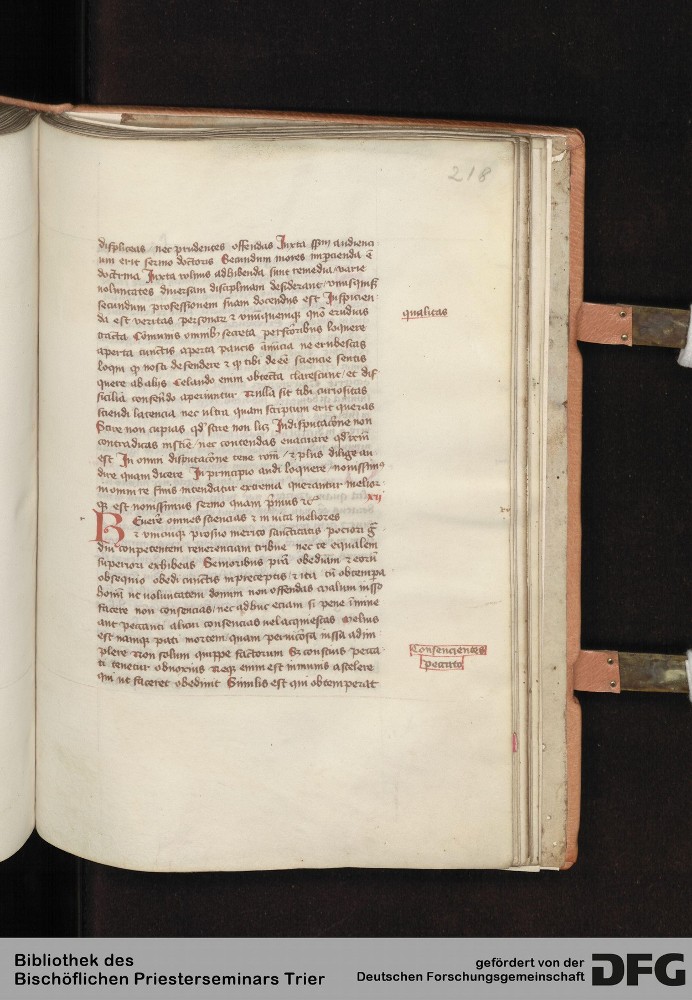 218
displiceas / nec prudentes offendas Iuxta sp̄m audienci
um erit sermo doctoris Secundum mores impcienda ē
doctrina Iuxta vulnus adhibenda sunt remedia / varie
voluntates diversam disciplinam desiderant / vniusquisqꝫ
secundum professionem suam docendus est Inspicien
da est veritas personar̄ ⁊ vnicuiqueqꝫ quō erudias
qualitas
tracta Cōmunia omnibꝫ / secreta perfectioribus loquere
aperta cunctis aperta paucis āmīcia ne erubescas
loqui qꝫ nosti defendere ⁊ qꝫ tibi deēē sciencie sentis
quere ab aliis Celando enim obtecta clarescunt / et dif
ficilia conferēdo aperiuntur Nulla sit tibi curiositas
sciendi latencia nec ultra quam scriptum erit queras
Scire non cupias qd̓ scire non licꝫ Indisputacōne non
contradicas iusticie / nec contendas euacuare qd̓ verū
est In omni disputacōne tene rōm̄ / ⁊ plus dilige au
dire quam dicere In principio audi loquere / nouissimꝰ
in omni re finis intendatur extrema querantur melior
qꝫ est nouissimus sermo quam p̄mus ⁊c̄
xij
Reuere omnes sciencia ⁊ in vita meliores
⁊ vnicuiqꝫ prosuo merito sanctitatis pociori grā
dui conpetentem reuerenciam tribue nec te equalem
superiori exhibeas Senioribus prā obediam ⁊ eorū
obsequio obedi cunctis in preceptis / ⁊ ita tū obtempa
homī ut voluntatem domini non offendas Malum iusso
facere non consencias / nec adhuc eciam si pene īmine
ant peccanti alicui consencias vel acquiescas Melius
est namqꝫ pati mortem quam perniciosa iussa adim
plere Non solum quippe factorum Sꝫ conscius pecca
Consencientes
peccato
ti tenetur obnoxius Neqꝫ enim est inmunis ascelere
qui ut faceret obediuit Similis est qui obtemperat
Bibliothek des
Bischöflichen Priesterseminars Trier
gefördert von der
Deutschen Forschungsgemeinschaft
DFG